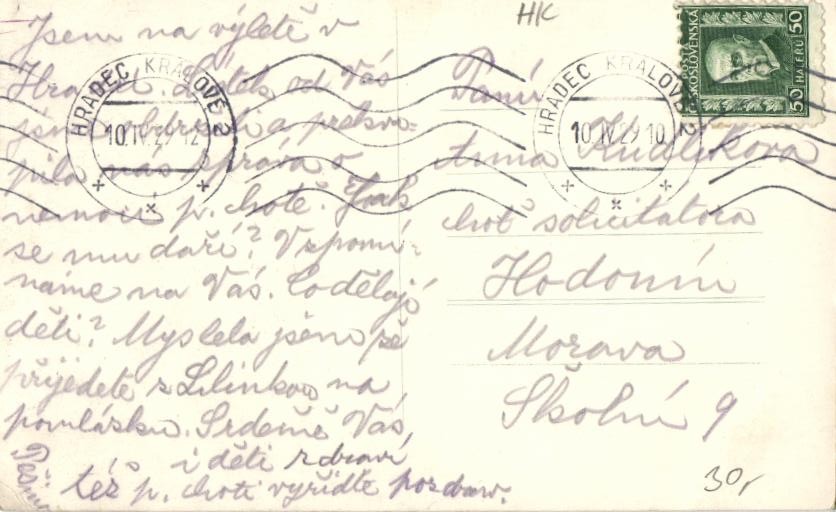 Jsem na výletě v
Hradci. Lístek od Vás
jsme obdrželi a překva=
pila nás zpráva o
nemoci p. chotě. Jak
se mu daří? Vzpomí-
náme na Vás. Co dělají
děti? Myslela jsem že
přijedete s Lilinkou na
pomlázku. Srdečně Vás,
i děti zdraví
též p. choti vyřiďte pozdrav.
HK
POŠTA
ČESKOSLOVENSKÁ
50 HALÉŘŮ 50
HRADEC KRÁLOVÉ 2
10.IV.29.12
HRADEC KRÁLOVÉ 2
10.IV.29.10
Paní
Anna Kudlíkova
choť solicitatora
Hodonín
Morava
Školní 9
30,-